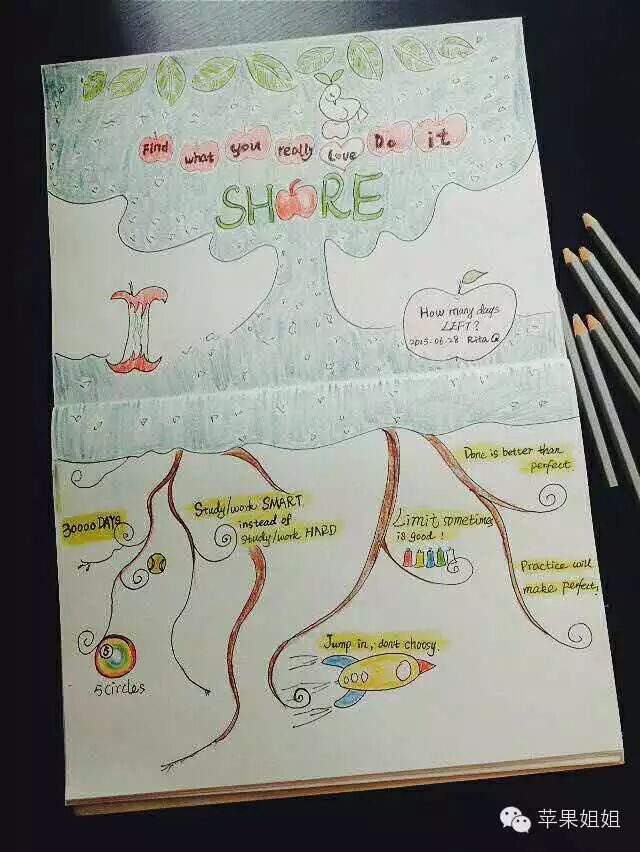 Find what you really Love Do it
SHARE
How many days
LEFT?
2015-06-28 Rita Q
Done is better than
perfect
30000 DAYS
Study/work SMART
instead of
study/work HARD
Limit sometimes
is good!
Practice will
make perfect,
Jump in, don't choosy.
5
5 circles
苹果姐姐